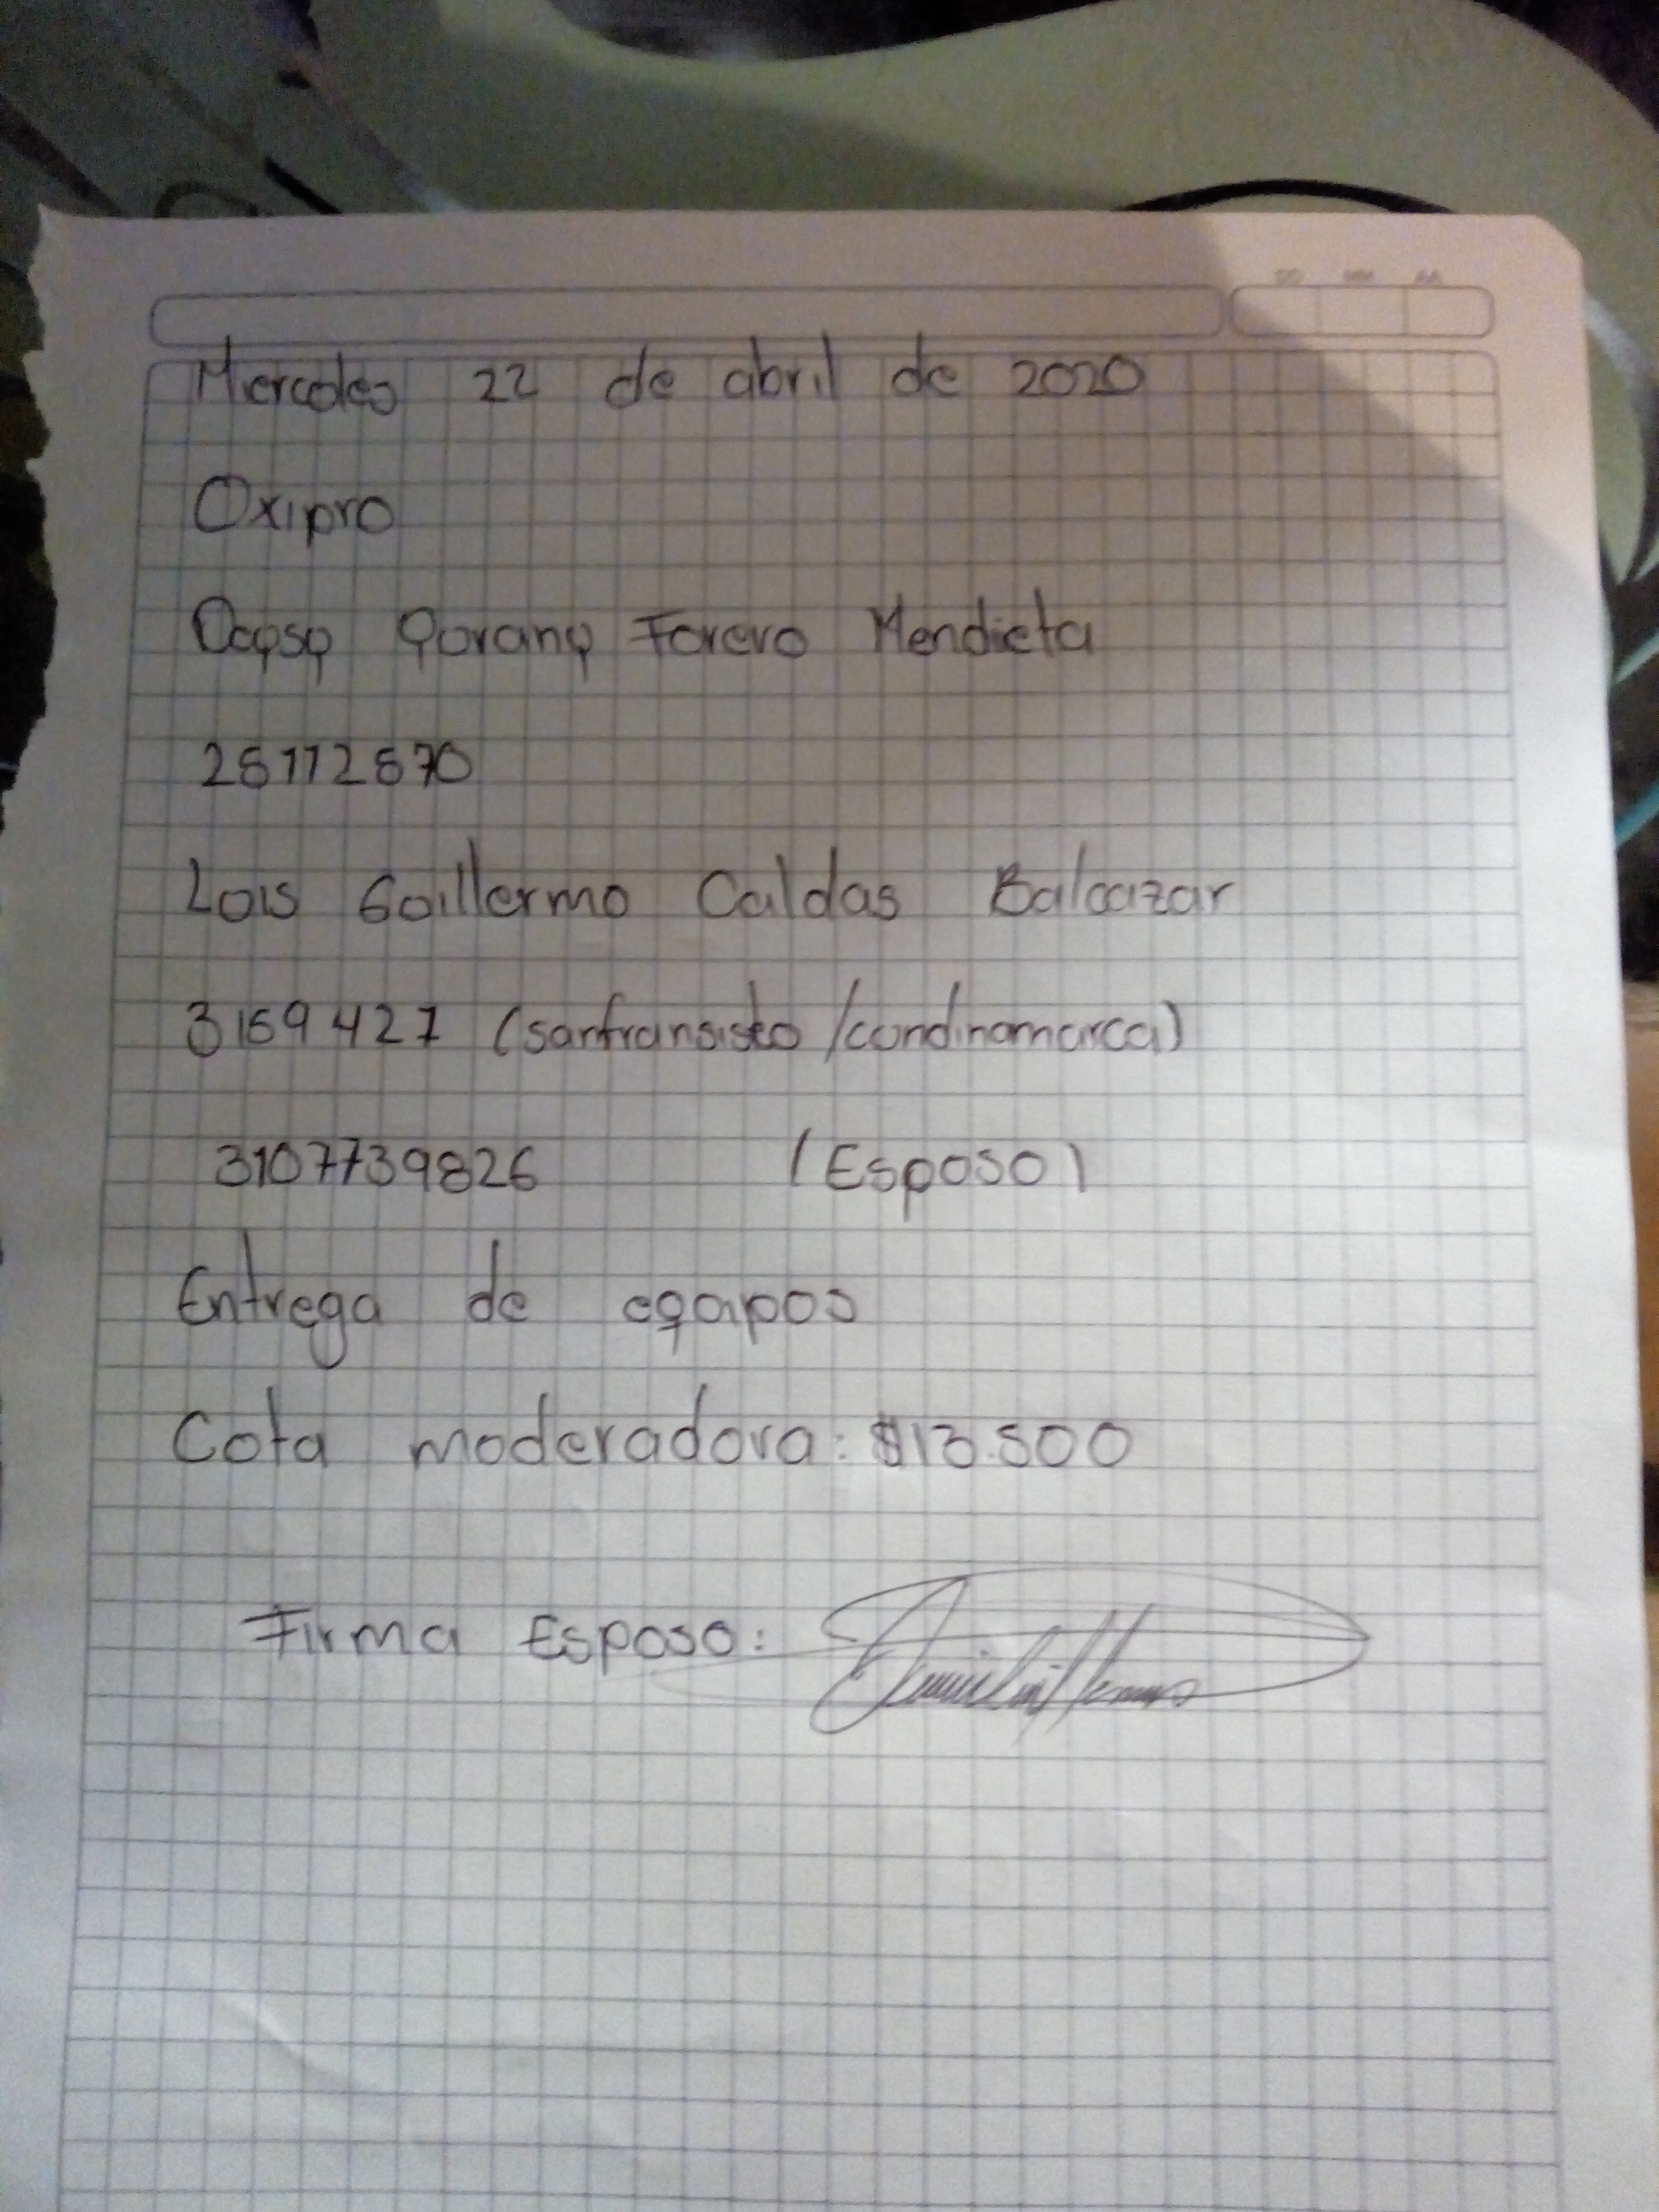 DD MM AA
Miercoles 22 de abril de 2020
Oxipro
Daysy Yurany Forero Mendieta
28112870
Luis Guillermo Caldas Balcazar
3159427 (sanfransisco /cundinamarca)
3107739826 (Esposo)
Entrega de equipos
Cota moderadora: $13.500
Firma Esposo: